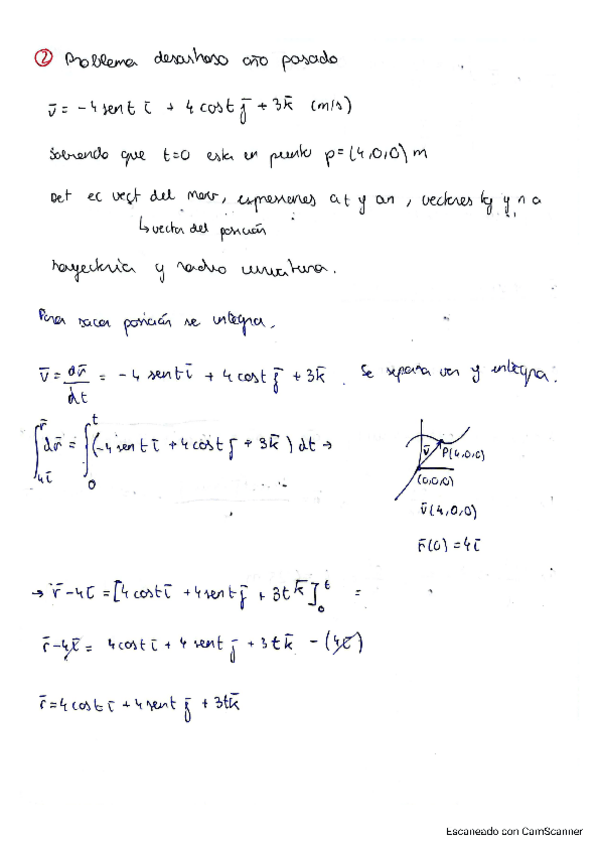 ② Problema desastroso año pasado
v̄ = -4 sent ī + 4 cost j̄ + 3k̄ (m/s)
Sabiendo que t=0 esta en punto p=(4,0,0) m
Det ec vect del mov, expresiones at y an, vectores tg y n a
↳ vector del posición
trayectoria y radio curvatura.
Para sacar posición se integra.
v̄ = dr̄/dt = -4 sent ī + 4 cost j̄ + 3k̄ . Se separa var y integra:
∫_{4ī}^{r̄} dr̄ = ∫_0^t (-4 sent ī + 4 cost j̄ + 3k̄) dt →
v̄
P(4,0,0)
(0,0,0)
v̄(4,0,0)
r̄(0) = 4ī
→ r̄ - 4ī = [4 cost ī + 4 sent j̄ + 3t k̄]_0^t =
r̄ - 4ī = 4 cost ī + 4 sent j̄ + 3t k̄ - (4ī)
r̄ = 4 cost ī + 4 sent j̄ + 3t k̄
Escaneado con CamScanner